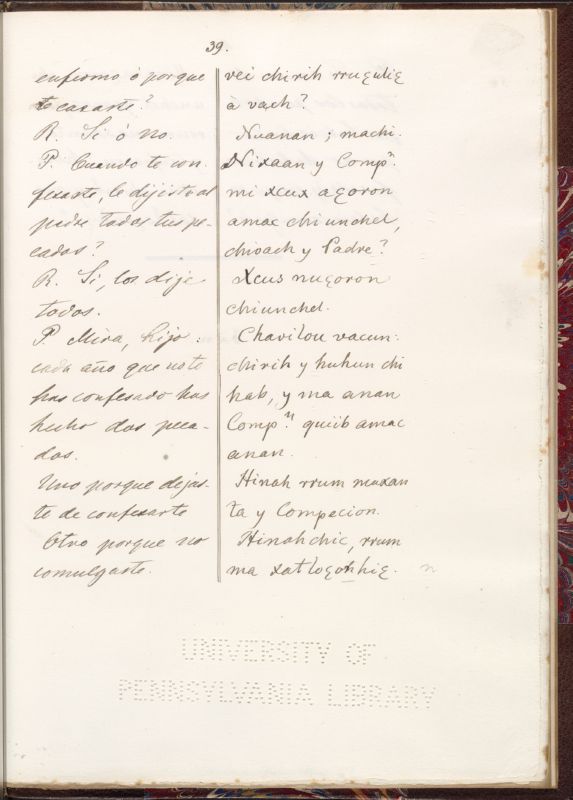 39.
enfermo ó porque
te casaste?
R. Si ó no.
P. Cuando te con-
fesaste, le dijiste al
padre todos tus pe-
cados?
R. Si, los dije
todos.
P. Mira, hijo:
cada año que no te
has confesado has
hecho dos peca-
dos.
Uno porque dejas-
te de confesarte
Otro porque no
comulgaste.
vei chirih rruguliɛ
à vach?
Nuanan; machi.
Nixaan y Compn.
mi xcux aɛoron
amac chiunchel,
chioach y Padre?
Xcus nuɛoron
chiunchel.
Chavilou vacun:
chirih y huhun chi
hab, y ma anan
Compn. quiib amac
anan.
Hinah rrum maxan
ta y Compecion.
Hinah chic, rrum
ma xatloɛohhiɛ. n
UNIVERSITY OF
PENNSYLVANIA LIBRARY